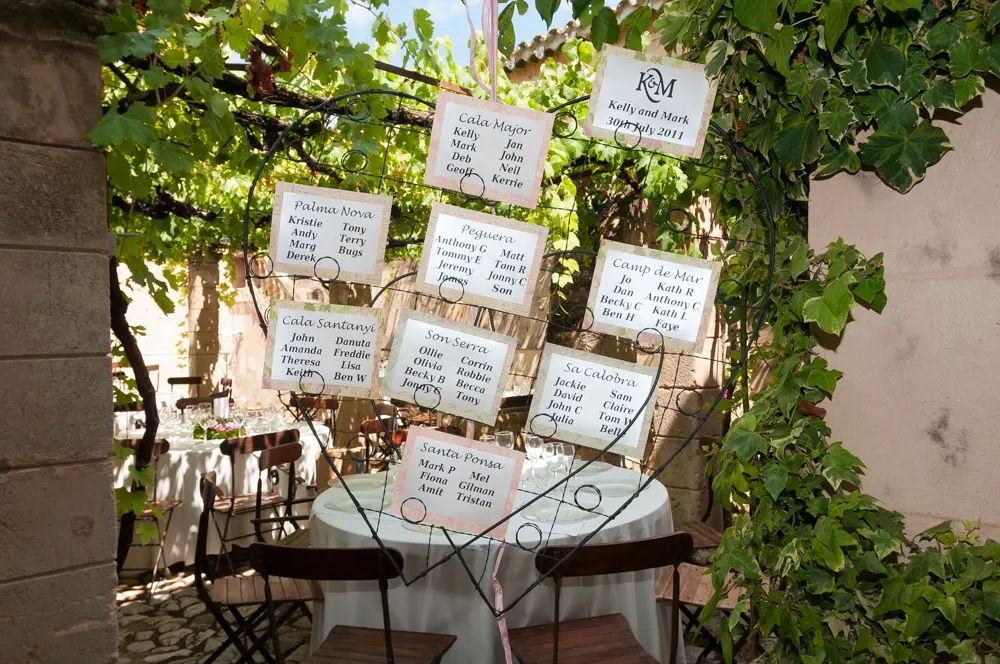 K&M
Kelly and Mark
30th July 2011
Cala Major
Kelly Jan
Mark John
Deb Neil
Geoff Kerrie
Palma Nova
Kristie Tony
Andy Terry
Marg Bugs
Derek
Peguera
Anthony G Matt
Tommy E Tom R
Jeremy Jonny C
James Son
Camp de Mar
Jo Kath R
Dan Anthony C
Becky C Kath L
Ben H Faye
Cala Santanyi
John Danuta
Amanda Freddie
Theresa Lisa
Keith Ben W
Son Serra
Ollie Corrin
Olivia Robbie
Becky B Becca
Jonny B Tony
Sa Calobra
Jackie Sam
David Claire
John C Tom W
Julia Bella
Santa Ponsa
Mark P Mel
Fiona Gilman
Amit Tristan